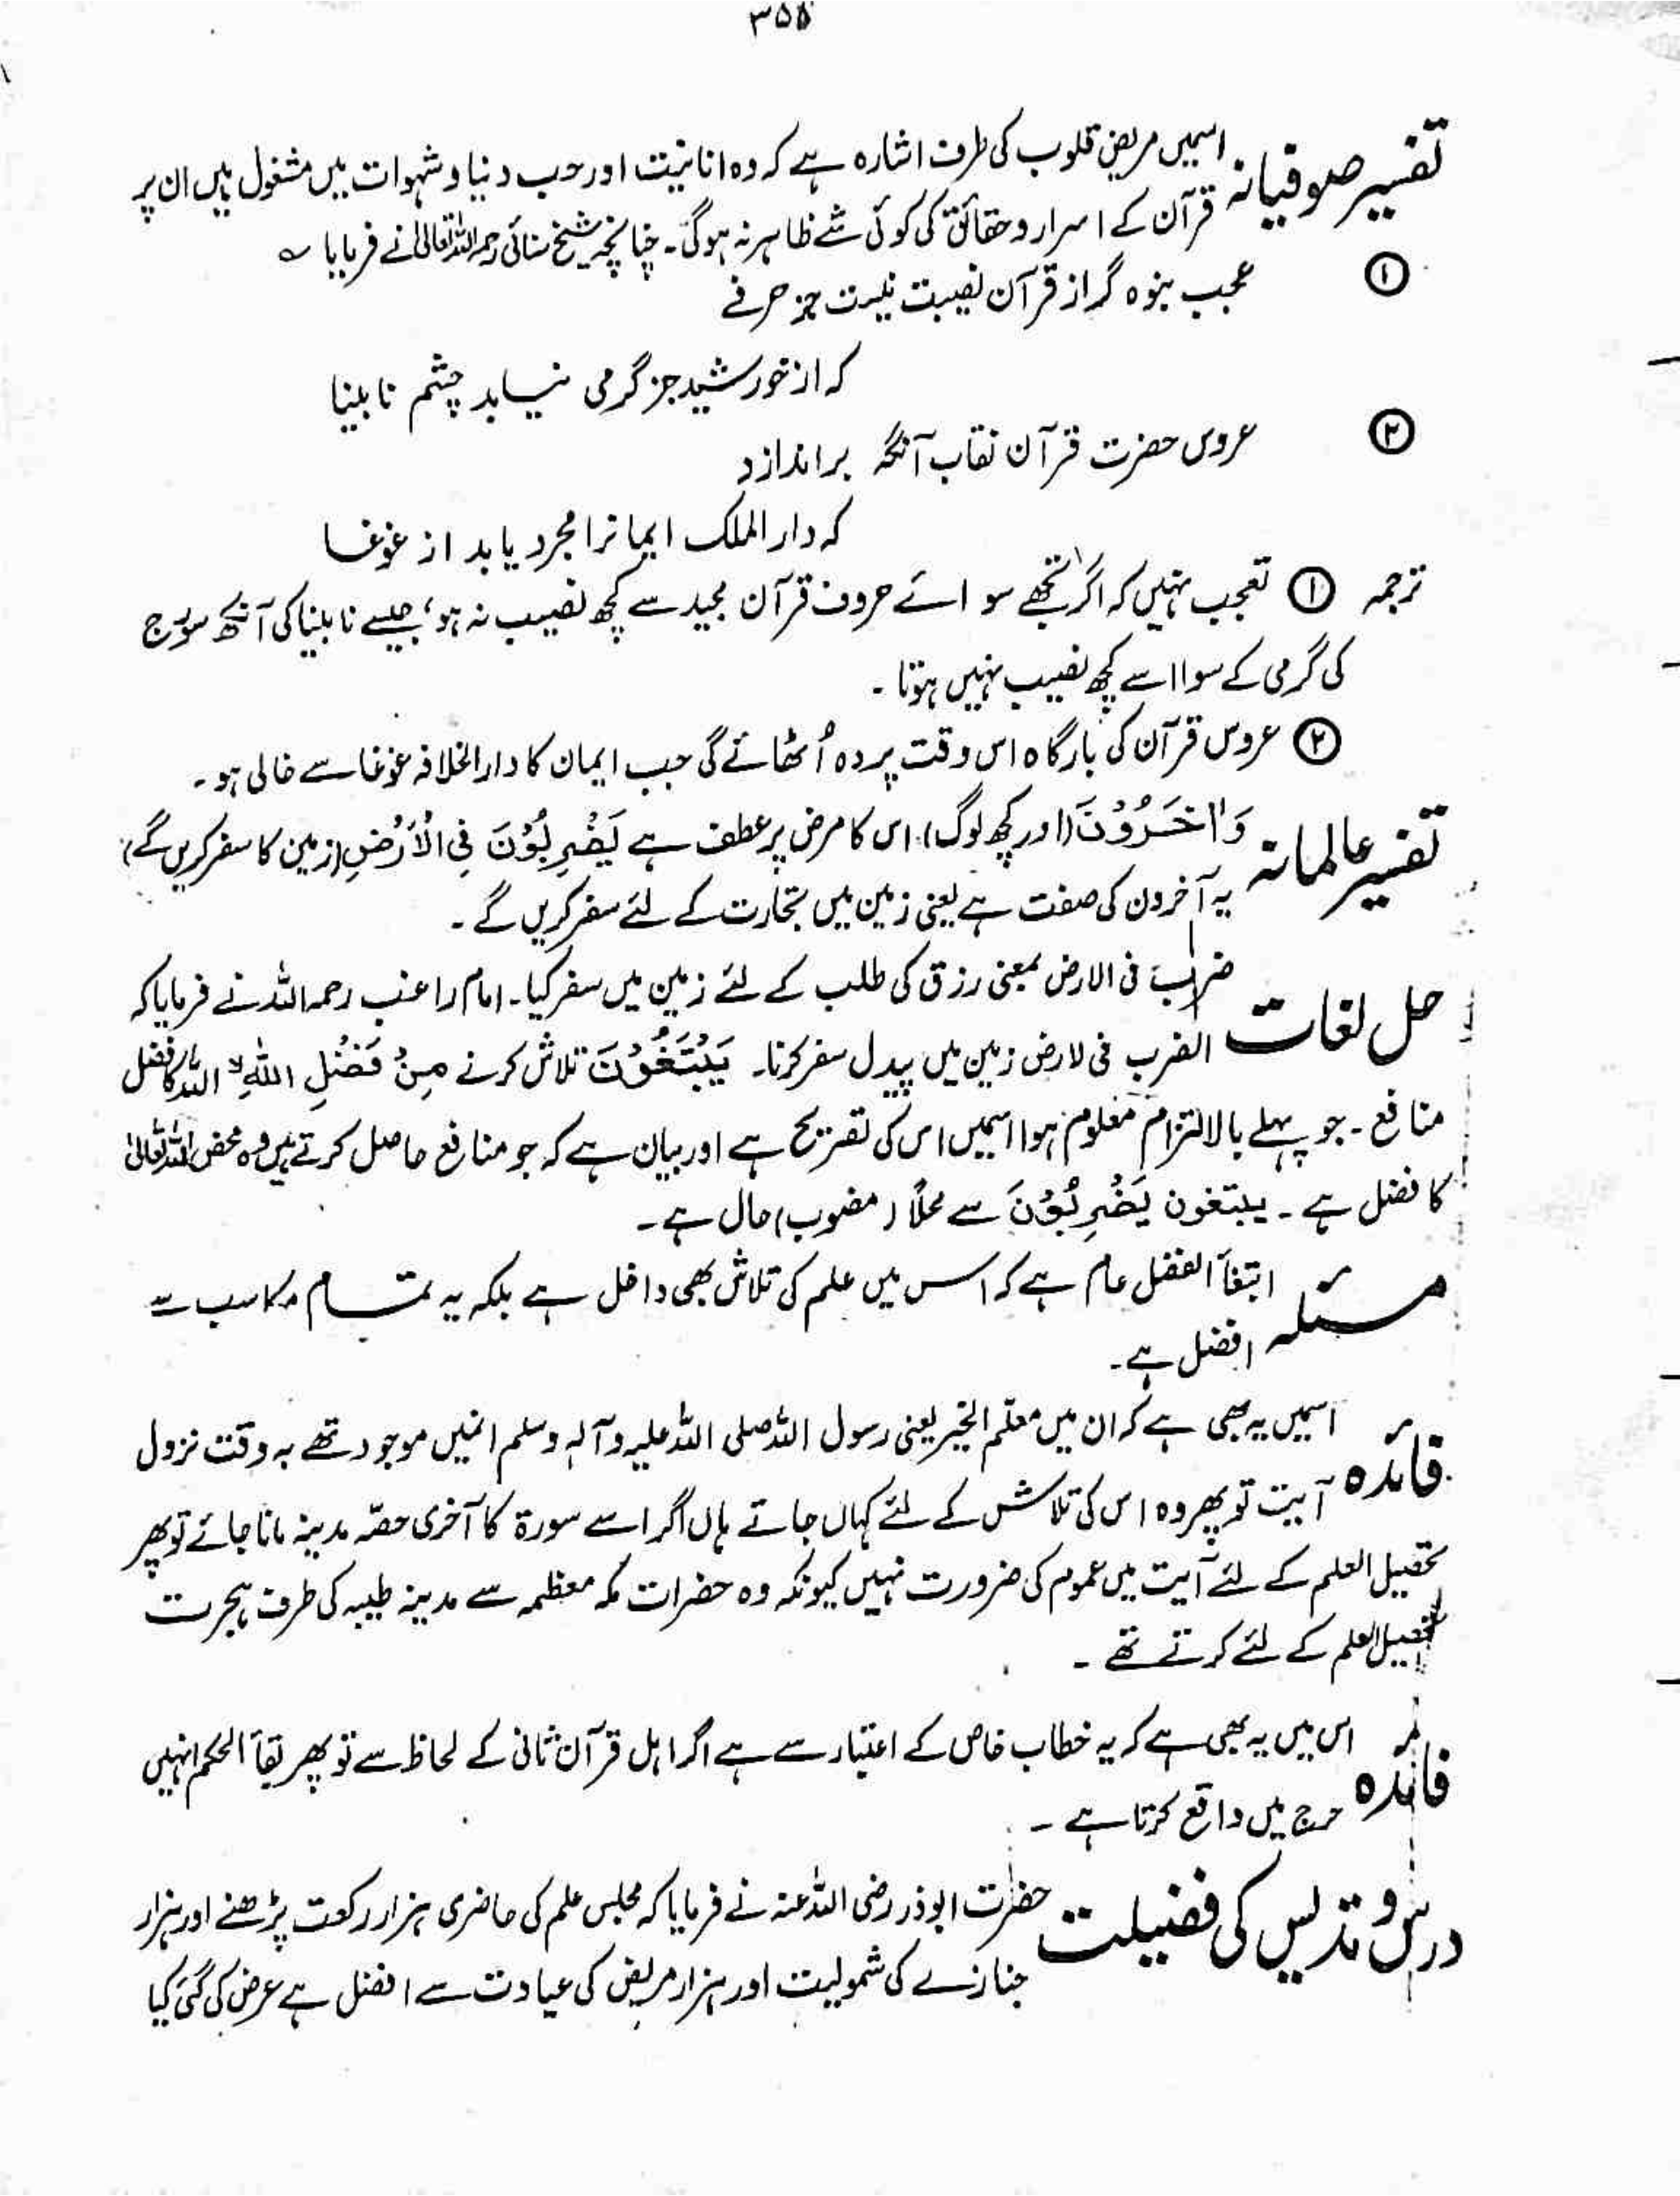 ۳۵۵
تفسیر صوفیانہ اسمیں مریض قلوب کی طرف اشارہ ہے کہ وہ انانیت اور حب دنیا و شہوات میں مشغول ہیں ان پر
قرآن کے اسرار و حقائق کی کوئی شے ظاہر نہ ہوگی۔ چنانچہ شیخ سنائی رحمہ اللہ تعالیٰ نے فرمایا ؎
① عجب نبوہ گر از قرآن نصیبت نیست جز حرفے
کہ از خورشید جز گرمی نیابد چشم نابینا
② عروس حضرت قرآن نقاب آنگہ براندازد
کہ دار الملک ایمانرا مجرد یابد از غوغا
ترجمہ ① تعجب نہیں کہ اگر تجھے سوائے حروف قرآن مجید سے کچھ نصیب نہ ہو، جیسے نابینا کی آنکھ سورج
کی گرمی کے سوا اسے کچھ نصیب نہیں ہوتا ۔
② عروس قرآن کی بارگاہ اس وقت پردہ اُٹھائے گی جب ایمان کا دارالخلافہ غوغا سے خالی ہو ۔
تفسیر عالمانہ وَاٰخَرُوْنَ (اور کچھ لوگ) اس کا مرض پر عطف ہے يَضْرِبُوْنَ فِی الْاَرْضِ (زمین کا سفر کریں گے)
یہ آخرون کی صفت ہے یعنی زمین میں تجارت کے لئے سفر کریں گے ۔
حل لغات ضرب فی الارض بمعنی رزق کی طلب کے لئے زمین میں سفر کیا۔ امام راغب رحمہ اللہ نے فرمایا کہ
الضرب فی لارض زمین میں پیدل سفر کرنا۔ يَبْتَغُوْنَ تلاش کرنے مِنْ فَضْلِ اللّٰهِ ۙ اللہ کا فضل
منافع ۔ جو پہلے بالالتزام معلوم ہوا اسمیں اس کی تصریح ہے اور بیان ہے کہ جو منافع حاصل کرتے ہیں وہ محض اللہ تعالیٰ
کا فضل ہے ۔ یبتغون يَضْرِبُوْنَ سے محلاً (منصوب) حال ہے ۔
مسئلہ ابتغآ الفضل عام ہے کہ اس میں علم کی تلاش بھی داخل ہے بلکہ یہ تمام مکاسب سے
افضل ہے ۔
فائدہ اسمیں یہ بھی ہے کہ ان میں معلّم الخیر یعنی رسول اللہ صلی اللہ علیہ وآلہ وسلم انمیں موجود تھے بہ وقت نزول
آیت تو پھر وہ اس کی تلاش کے لئے کہاں جاتے ہاں اگر اسے سورۃ کا آخری حصّہ مدینہ مانا جائے تو پھر
تحصیل العلم کے لئے آیت میں عموم کی ضرورت نہیں کیونکہ وہ حضرات مکہ معظمہ سے مدینہ طیبہ کی طرف ہجرت
تحصیل العلم کے لئے کرتے تھے ۔
فائدہ اس میں یہ بھی ہے کہ یہ خطاب خاص کے اعتبار سے ہے اگر اہل قرآن ثانی کے لحاظ سے تو پھر بقآ الحکم انہیں
حرج میں واقع کرتا ہے ۔
درس و تدریس کی فضیلت حضرت ابوذر رضی اللہ عنہ نے فرمایا کہ مجلس علم کی حاضری ہزار رکعت پڑھنے اور ہزار
جنازے کی شمولیت اور ہزار مریض کی عیادت سے افضل ہے عرض کی گئی کیا